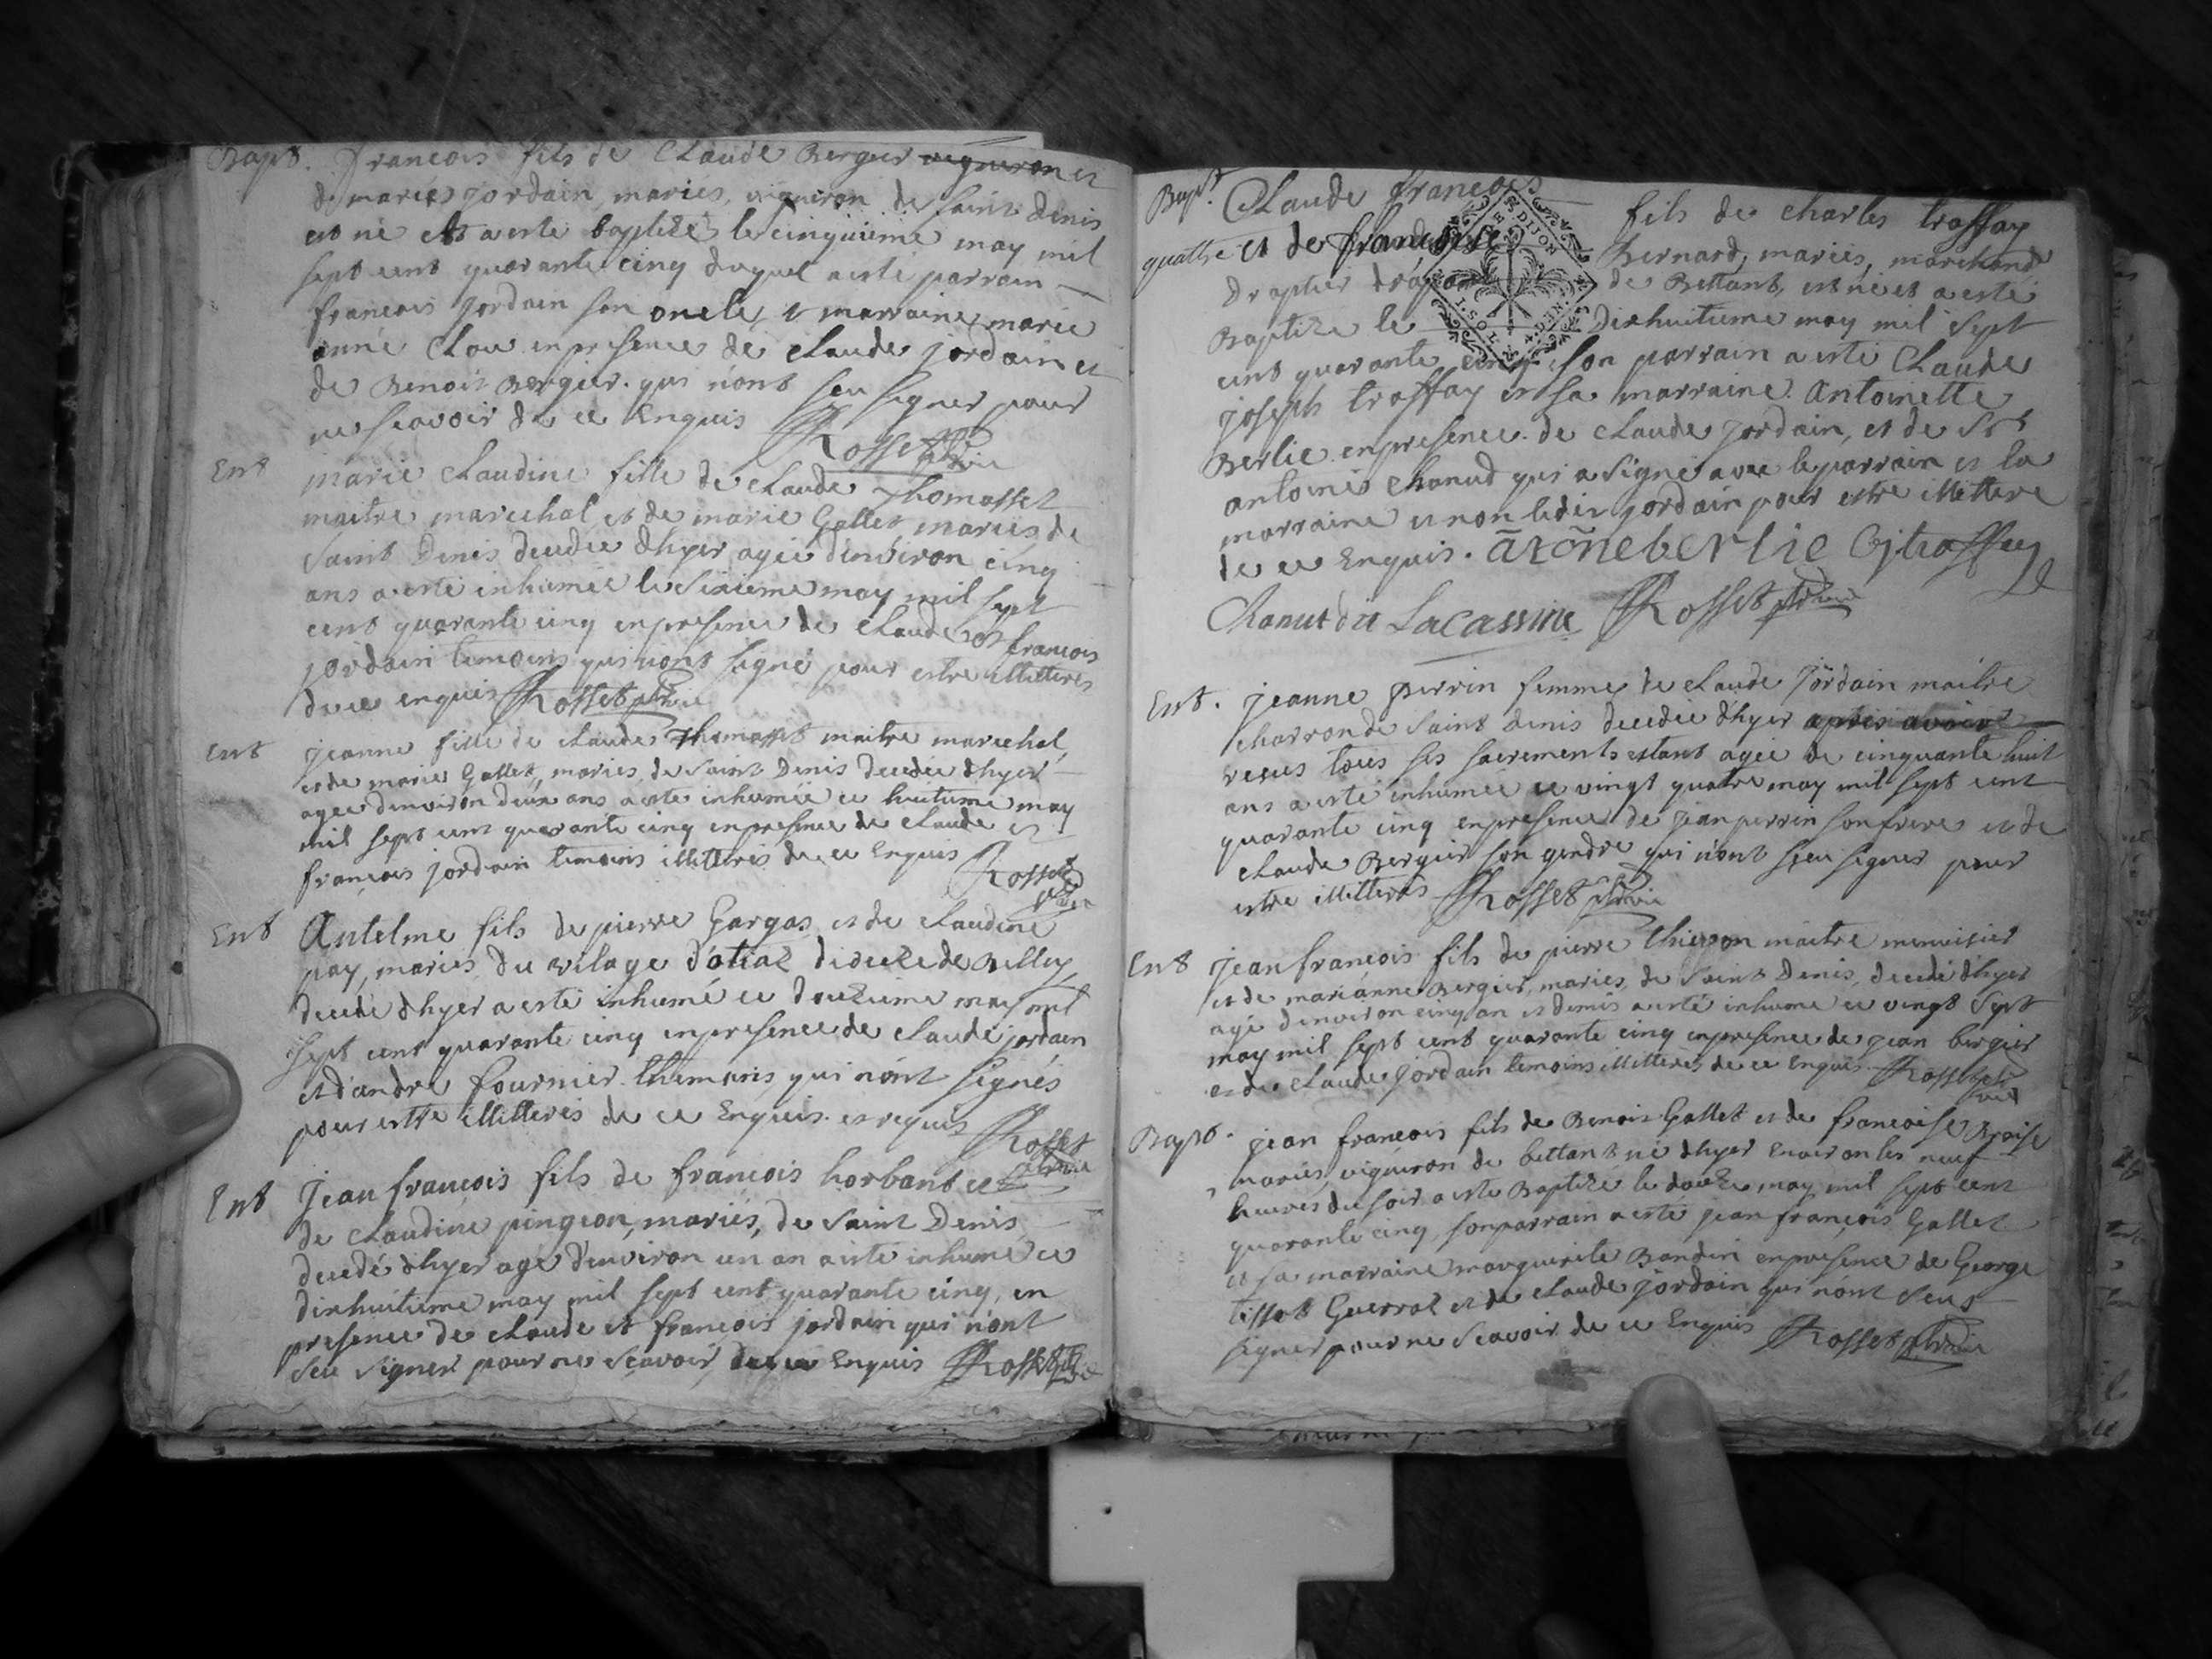 Bapt. françois fils de Claude Bergier vigneron et
de maries jordain, mariés, vigniron de saint denis
est né et a esté baptizé le cinquieme may mil
sept cent quarante cinq duquel a esté parrain
francois jordain son oncle, et marraine marie
anne Clou en presence de claude jordain et
de Benoit Bergier qui n'ont sceu signer pour
ne scavoir de ce Enquis Rosset
Ent marie Claudine fille de claude Thomasset
maitre marechal et de marie Gallet mariés de
saint Denis decedée d'hyer agée d'environ cinq
ans a esté inhumée le sixieme may mil sept
cent quarante cinq en presence de Claude et francois
jordain temoins qui n'ont signé pour estre illitteres
de ce enquis Rosset
Ent jeanne fille de claude Thomasset maitre marechal,
et de marie Gallet, mariés, de saint Denis decedée d'hyer
agée d'environ deux ans a esté inhumée ce huitieme may
mil sept cent quarante cinq en presence de claude et
françois jordain temoins illitterés de ce Enquis Rosset
Ent Antelme fils de pierre Gargas et de claudine
pay, mariés du vilage d'otiaz diocese de Belley
decedé d'hyer a esté inhumé ce douzieme may mil
sept cent quarante cinq en presence de claude jordain
et d'andré fournier themoins qui n'ont signés
pour estre illitterés de ce Enquis et requis Rosset
Ent Jean francois fils de francois horbant et
de claudine pingeon, mariés, de saint Denis
decedé d'hyer agé d'environ un an a esté inhumé ce
dixhuitieme may mil sept cent quarante cinq, en
presence de claude et françois jordain qui n'ont
sceu signer pour ne sçavoir de ce enquis Rosset
Bapt. Claude francois fils de charles traffay
quattre et de francoise Bernard, mariés, marchand
Draptier drapant de Bettant, est né et a esté
Baptizé le Dixhuitieme may mil sept
cent quarante cinq son parrain a esté Claude
joseph traffay et sa marraine Antoinette
Berlie en presence de claude jordain, et de Sr
antoine chanud qui a signé avec le parrain et la
marraine et non ledit jordain pour estre illittere
de ce Enquis. atoñe berlie Cj traffay
Chanut dit Lacassine Rosset
Ent. jeanne perrin femme de claude jordain maitre
charron de saint denis decedée d'hyer apres avoir
reçus tous ses sacrements estant agée de cinquante huit
ans a esté inhumée ce vingt quatre may mil sept cent
quarante cinq en presence de jean perrin son frere et de
claude Bergier son gendre qui n'ont sceu signer pour
estre illitterés Rosset
Ent jean francois fils de pierre thieppon maitre menuisier
et de marianne Bergier, mariés, de saint Denis, decedé d'hyer
agé d'environ cinq an et demis a esté inhumé ce vingt sept
may mil sept cent quarante cinq en presence de jean bergier
et de claude jordain temoins illitterés de ce Enquis. Rosset
Bapt. jean francois fils de Benoit Gallet et de francoise Broise
mariés, vigniron de bettant né d'hyer Environ les neuf
heures du soir a esté Baptizé le douze may mil sept cent
quarante cinq, son parrain a esté jean françois Gallet
et sa marraine marguerite Bandin en presence de George
tissot Guerraz et de claude jordain qui n'ont seus
signer pour ne scavoir de ce Enquis Rosset